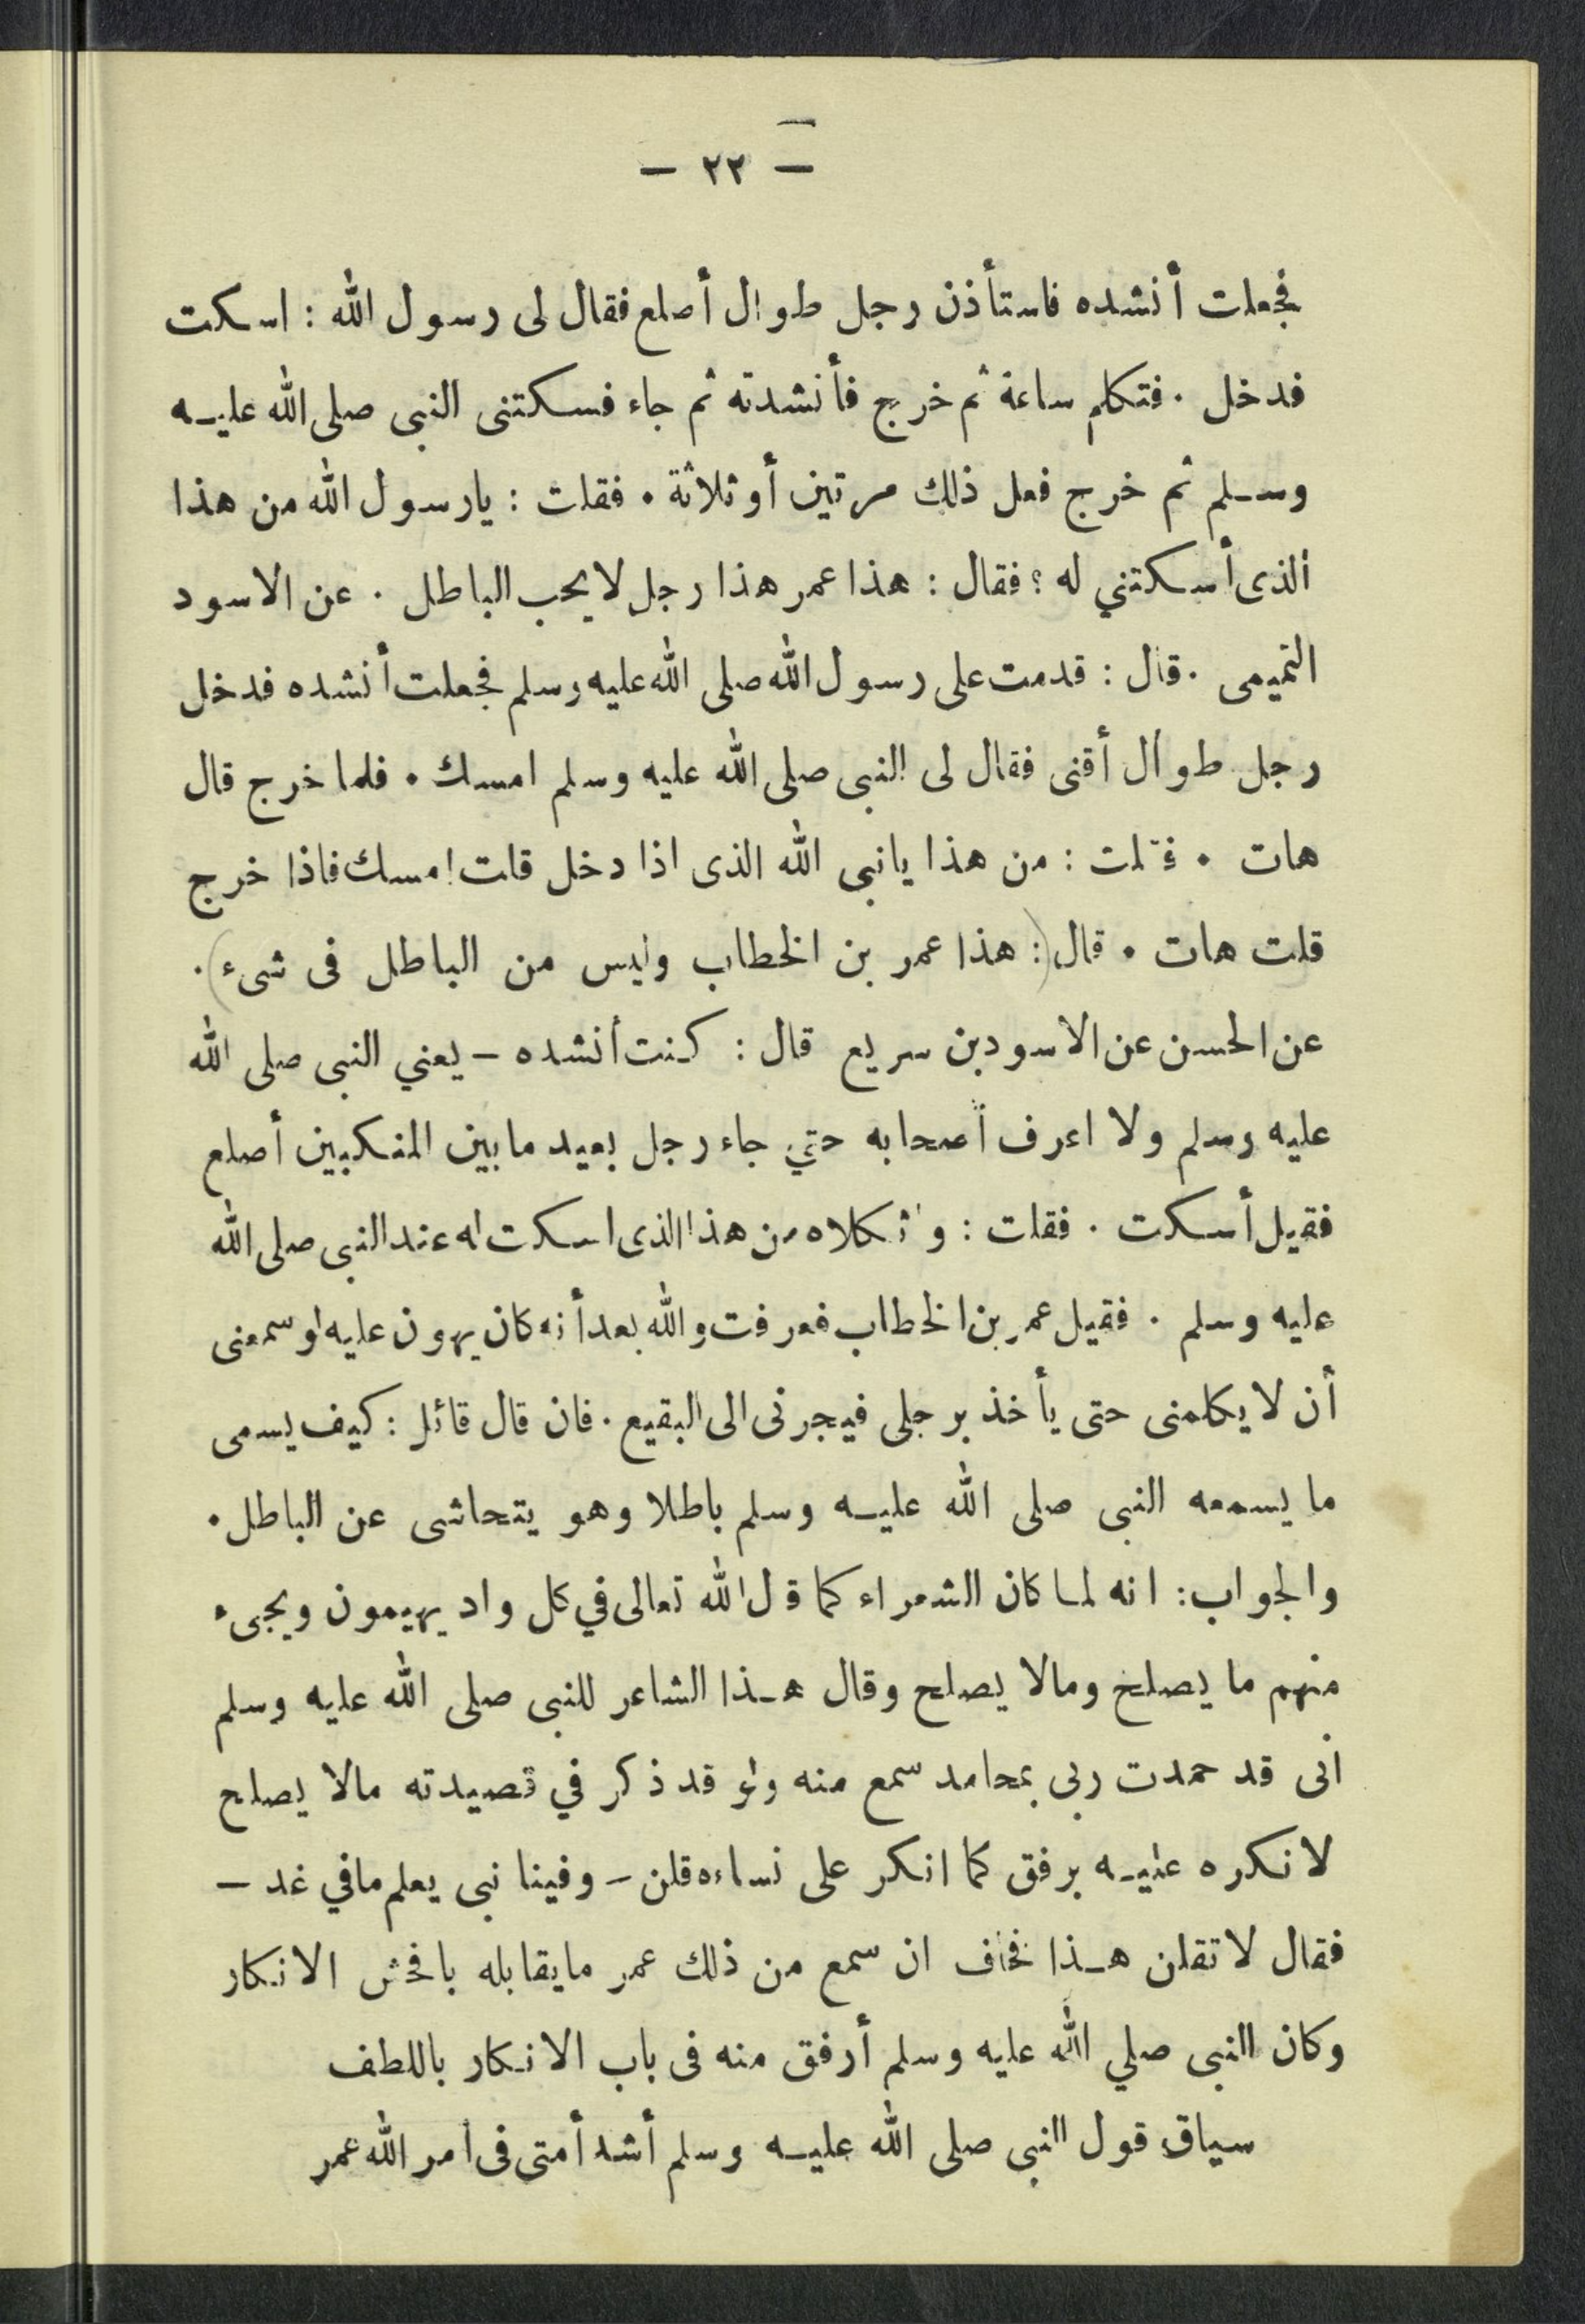 — ٢٢ —
فجعلت أنشده فاستأذن رجل طوال أصلع فقال لى رسول الله : اسكت
فدخل . فتكلم ساعة ثم خرج فأنشدته ثم جاء فسكتنى النبى صلى الله عليه
وسلم ثم خرج فعل ذلك مرتين أو ثلاثة . فقلت : يارسول الله من هذا
الذى أسكتني له ؟ فقال : هذا عمر هذا رجل لا يحب الباطل . عن الاسود
التميمى . قال : قدمت على رسول الله صلى الله عليه وسلم فجعلت أنشده فدخل
رجل طوال أقنى فقال لى النبى صلى الله عليه وسلم امسك . فلما خرج قال
هات . فقلت : من هذا يانبى الله الذى اذا دخل قلت امسك فاذا خرج
قلت هات . قال (: هذا عمر بن الخطاب وليس من الباطل فى شىء) .
عن الحسن عن الاسود بن سريع قال : كنت أنشده – يعني النبى صلى الله
عليه وسلم ولا اعرف أصحابه حتي جاء رجل بعيد ما بين المنكبين أصلع
فقيل أسكت . فقلت : واثكلاه من هذا الذى اسكت له عند النبى صلى الله
عليه وسلم . فقيل عمر بن الخطاب فعرفت والله بعد أنه كان يهون عليه لو سمعنى
أن لا يكلمنى حتى يأخذ برجلى فيجرنى الى البقيع . فان قال قائل : كيف يسمى
ما يسمعه النبى صلى الله عليه وسلم باطلا وهو يتحاشى عن الباطل .
والجواب : انه لما كان الشعراء كما قال الله تعالى في كل واد يهيمون ويجىء
منهم ما يصلح ومالا يصلح وقال هذا الشاعر للنبى صلى الله عليه وسلم
انى قد حمدت ربى بمحامد سمع منه ولو قد ذكر في قصيدته مالا يصلح
لانكره عليه برفق كما انكر على نساءه قلن – وفينا نبى يعلم مافي غد –
فقال لا تقلن هذا فخاف ان سمع من ذلك عمر ما يقابله بافحش الانكار
وكان النبى صلي الله عليه وسلم أرفق منه فى باب الانكار باللطف
سياق قول النبى صلى الله عليه وسلم أشد أمتى فى أمر الله عمر